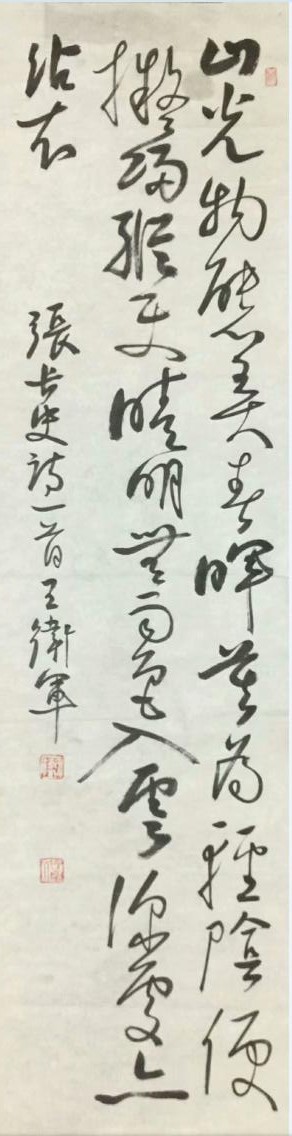 山光物態弄春暉莫為輕陰便
擬歸縱使晴明無雨色入雲深處亦
沾衣
張長史詩一首王衛軍